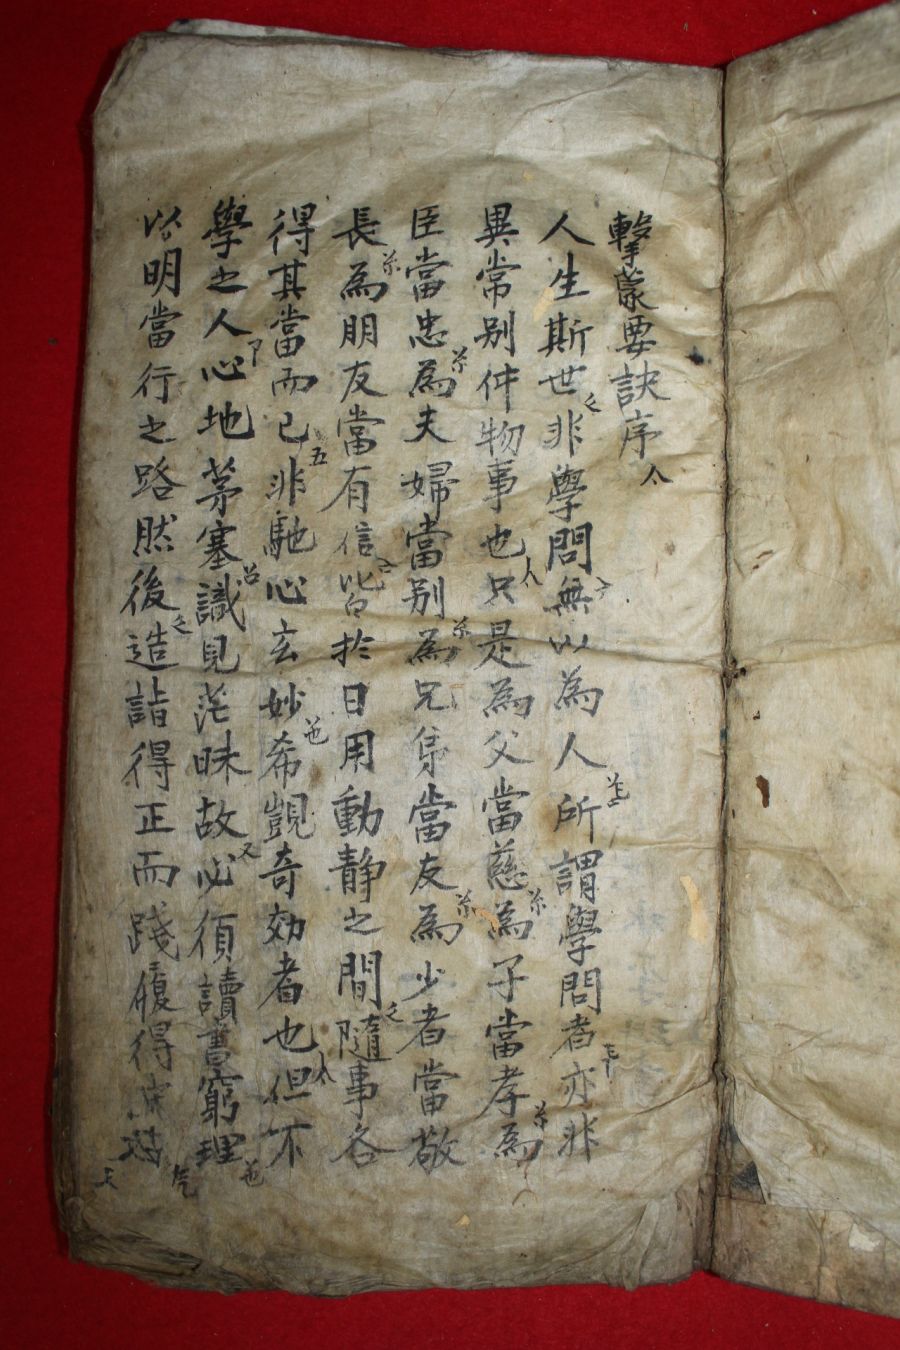 擊蒙要訣序
人生斯世非學問無以為人所謂學問者亦非
異常別件物事也只是為父當慈為子當孝為
臣當忠為夫婦當別為兄弟當友為少者當敬
長為朋友當有信皆於日用動靜之間隨事各
得其當而已非馳心玄妙希覬奇効者也但不
學之人心地茅塞識見茫昧故必須讀書窮理
以明當行之路然後造詣得正而踐履得